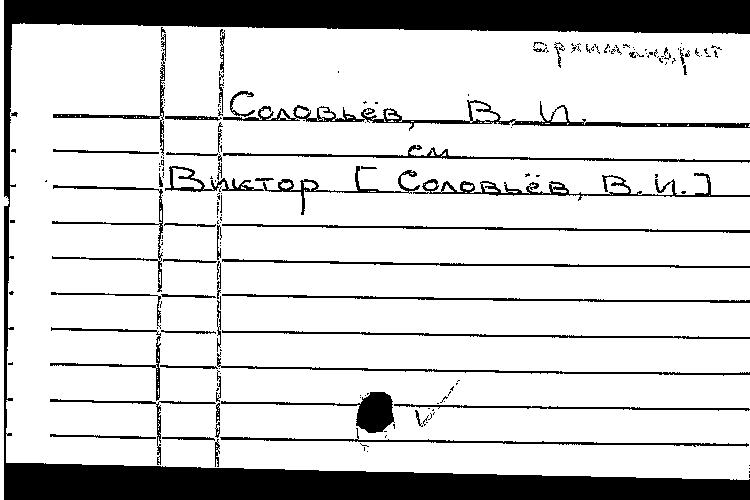 архимандрит
Соловьёв, В. И.
см
Виктор [Соловьёв, В.И.]